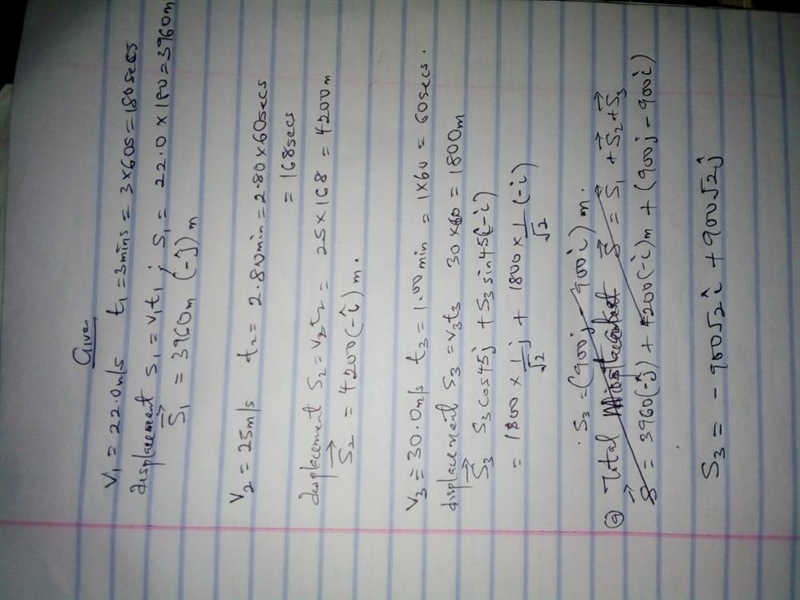 Given
V₁ = 22.0m/s t₁ = 3mins = 3×60s = 180secs
displacement S₁ = v₁t₁ ; S₁ = 22.0 × 180 = 3960m
S⃗₁ = 3960m (-ĵ) m
V₂ = 25m/s t₂ = 2.80min = 2.80×60secs
= 168secs
displacement S₂ = v₂t₂ = 25×168 = 4200m
S⃗₂ = 4200(-î) m.
V₃ = 30.0m/s t₃ = 1.00min = 1×60 = 60secs.
displacement S₃ = v₃t₃ 30×60 = 1800m
S⃗₃ S₃cos45j + S₃sin45(-i)
= 1800 × 1/√2 j + 1800 × 1/√2 (-i)
S₃ = (900j - 900i) m.
(a) Total S⃗ = S⃗₁ + S⃗₂ + S⃗₃
S⃗ = 3960(-j) + 4200(-i)m + (900j - 900i)
S₃ = -900√2i + 900√2j